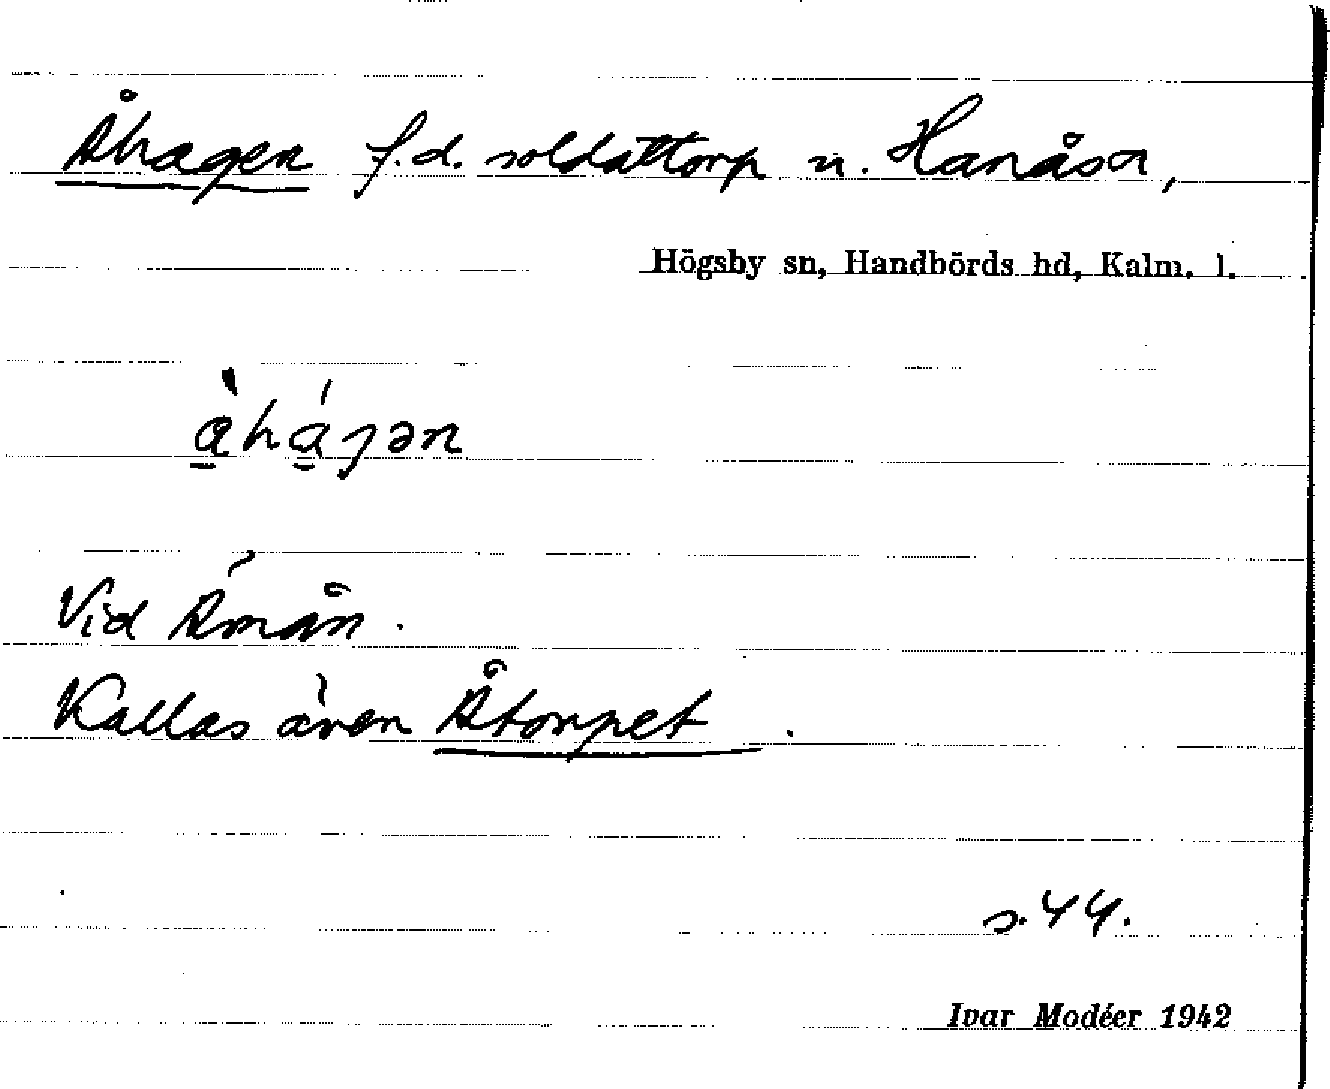 Åhagen f.d. soldattorp u. Hanåsa,
Högsby sn, Handbörds hd, Kalm. l.
à̱há̱gən
Vid Åmån.
Kallas även Åtorpet.
s. 44.
Ivar Modéer 1942